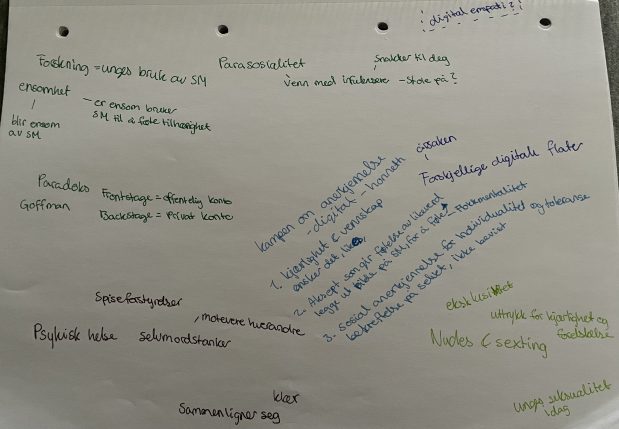 digital empati?
Forskning = unges bruk av SM
ensomhet
- er ensom bruker
SM til å føle tilhørighet
blir ensom
av SM
Parasosialitet
snakker til deg
Venn med influensere - Stole på?
årsaken
Forskjellige digitale flater
Paradoks
Goffman
Frontstage = offentlig konto
Backstage = privat konto
Kampen om anerkjennelse
- digital - honneth
1. kjærlighet & vennskap
ønsker det, likes,
2. Aksept som gir følelse av likeverd
legge ut bilde på SM, for å føle - Flokkmentalitet
3. sosial anerkjennelse for individualitet og toleranse
bekreftelse på selvet, ikke bevist
Spiseforstyrrelser
, motivere hverandre
Psykisk helse selvmordstanker
klær
Sammenligner seg
eksklusivitet
uttrykk for kjærlighet og
forelskelse
Nudes & sexting
unges seksualitet
idag